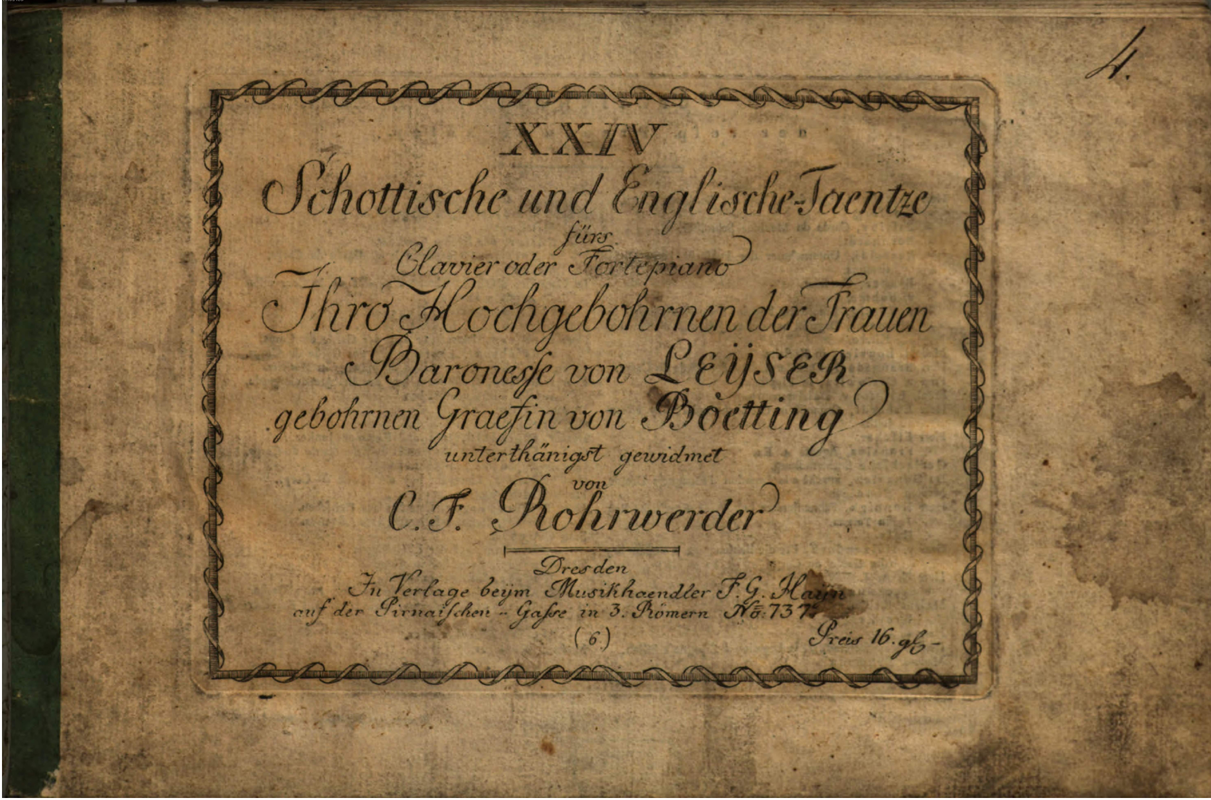 4.
XXIV
Schottische und Englische-Taentze
fürs
Clavier oder Fortepiano
Ihro Hochgebohrnen der Frauen
Baronesse von LEŸSER
gebohrnen Graefin von Böetting
unterthänigst gewidmet
von
C. F. Rohrwerder
Dresden
In Verlage beÿm Musikhaendler F. G. Haÿn
auf der Pirnaischen - Gasse in 3. Römern No: 737.
(6)
Preis 16. gl -